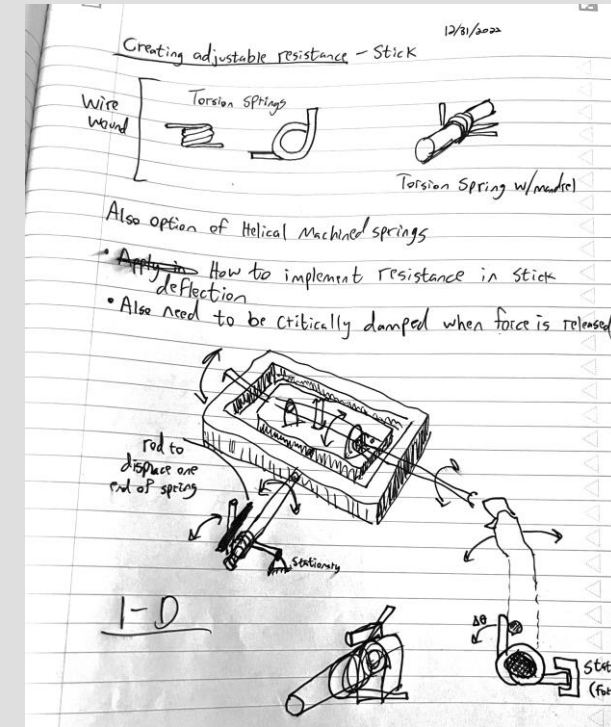 12/31/2022
Creating adjustable resistance - Stick
Wire
wound
Torsion Springs
Torsion Spring w/mandrel
Also option of Helical Machined springs
• How to implement resistance in stick
deflection
• Also need to be critically damped when force is released
rod to
displace one
end of spring
Stationary
1-D
Δθ